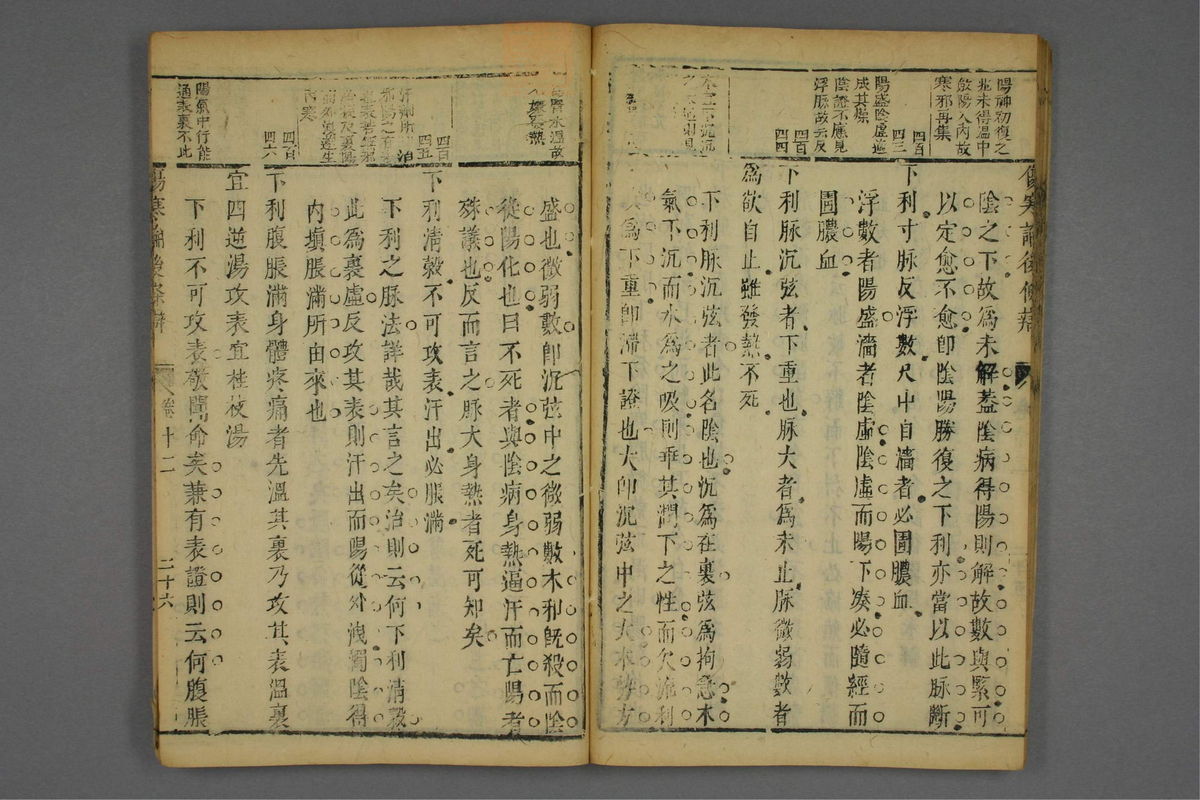 陽神初復之
兆未得溫中
斂陽入內故
寒邪再集
四百
四三
陽盛陰虛遂
成其燥
陰證不應見
浮脉故云反
四百
四四
陰之下故爲未解蓋陰病得陽則解故數與緊可
以定愈不愈卽陰陽勝復之下利亦當以此脉斷
下利寸脉反浮數尺中自濇者必圊膿血
浮數者陽盛濇者陰虛陰虛而陽下湊必隨經而
圊膿血
下利脉沉弦者下重也脉大者爲未止脉微弱數者
爲欲自止雖發熱不死
下利脉沉弦者此名陰也沉爲在裏弦爲拘急木
氣下沉而水爲之吸則乖其潤下之性而欠流利
爲下重卽滯下證也大卽沉弦中之大木勢方
水溫故
熱
四百
四五
四百
四六
陽氣中行能
通表裏不此
盛也微弱數卽沉弦中之微弱數木利旣殺而陰
從陽化也曰不死者與陰病身熱逼汗而亡陽者
殊議也反而言之脉大身熱者死可知矣
下利清穀不可攻表汗出必脹滿
下利之脉法詳哉其言之矣治則云何下利清穀
此爲裏虛反攻其表則汗出而陽從外洩濁陰得
內塡脹滿所由來也
下利腹脹滿身體疼痛者先溫其裏乃攻其表溫裏
宜四逆湯攻表宜桂枝湯
下利不可攻表敬聞命矣兼有表證則云何腹脹
傷寒論後條辨
卷十二
二十六